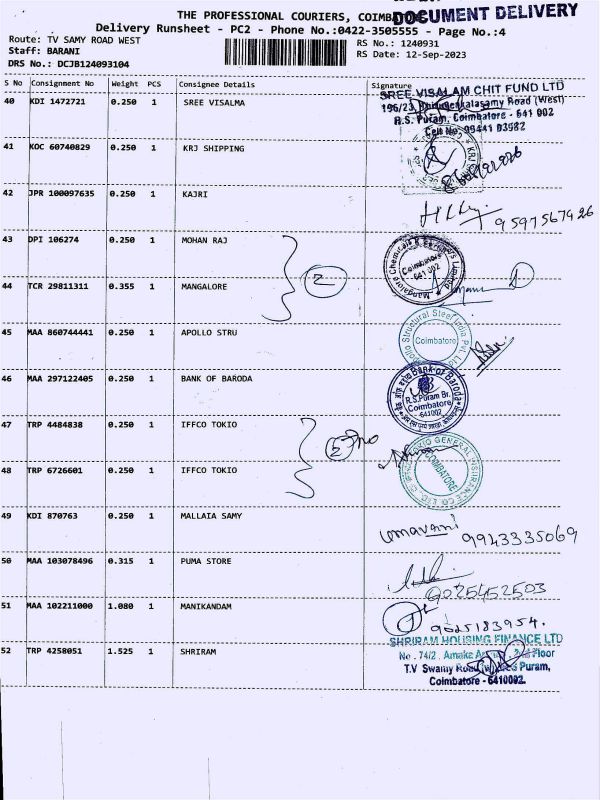 THE PROFESSIONAL COURIERS,
DOCUMENT DELIVERY
Delivery Runsheet - PC2 - Phone No.:0422-3505555 - Page No.:4
Route: TV SAMY ROAD WEST
RS No.: 1240931
Staff: BARANI
RS Date: 12-Sep-2023
DRS No.: DCJB124093104
S No Consignment No Weight PCS Consignee Details Signature
40 KDI 1472721 0.250 1 SREE VISALMA
SREE VISALAM CHIT FUND LTD
Road (West)
R.S. Puram, Coimbatore - 641 002
Cell No: 99441 03982
41 KOC 60740829 0.250 1 KRJ SHIPPING
KRJ
42 JPR 100097635 0.250 1 KAJRI
9597567926
43 DPI 106274 0.250 1 MOHAN RAJ
2
Mangalore Chemicals & Fertilizers Limited
Coimbatore
641 002
44 TCR 29811311 0.355 1 MANGALORE
45 MAA 860744441 0.250 1 APOLLO STRU
Apollo Structural Steel India Pvt Ltd
Coimbatore
46 MAA 297122405 0.250 1 BANK OF BARODA
Bank of Baroda
R.S.Puram Br.
Coimbatore
641002
47 TRP 4484838 0.250 1 IFFCO TOKIO
TOKIO GENERAL INSURANCE CO. LTD.
COIMBATORE
48 TRP 6726601 0.250 1 IFFCO TOKIO
49 KDI 870763 0.250 1 MALLAIA SAMY
umavani 9943335069
50 MAA 103078496 0.315 1 PUMA STORE
9025452503
51 MAA 102211000 1.080 1 MANIKANDAM
9525183954.
52 TRP 4258051 1.525 1 SHRIRAM
SHRIRAM HOUSING FINANCE LTD
No. 74/2, Floor
T.V Swamy Road Puram,
Coimbatore - 641002.